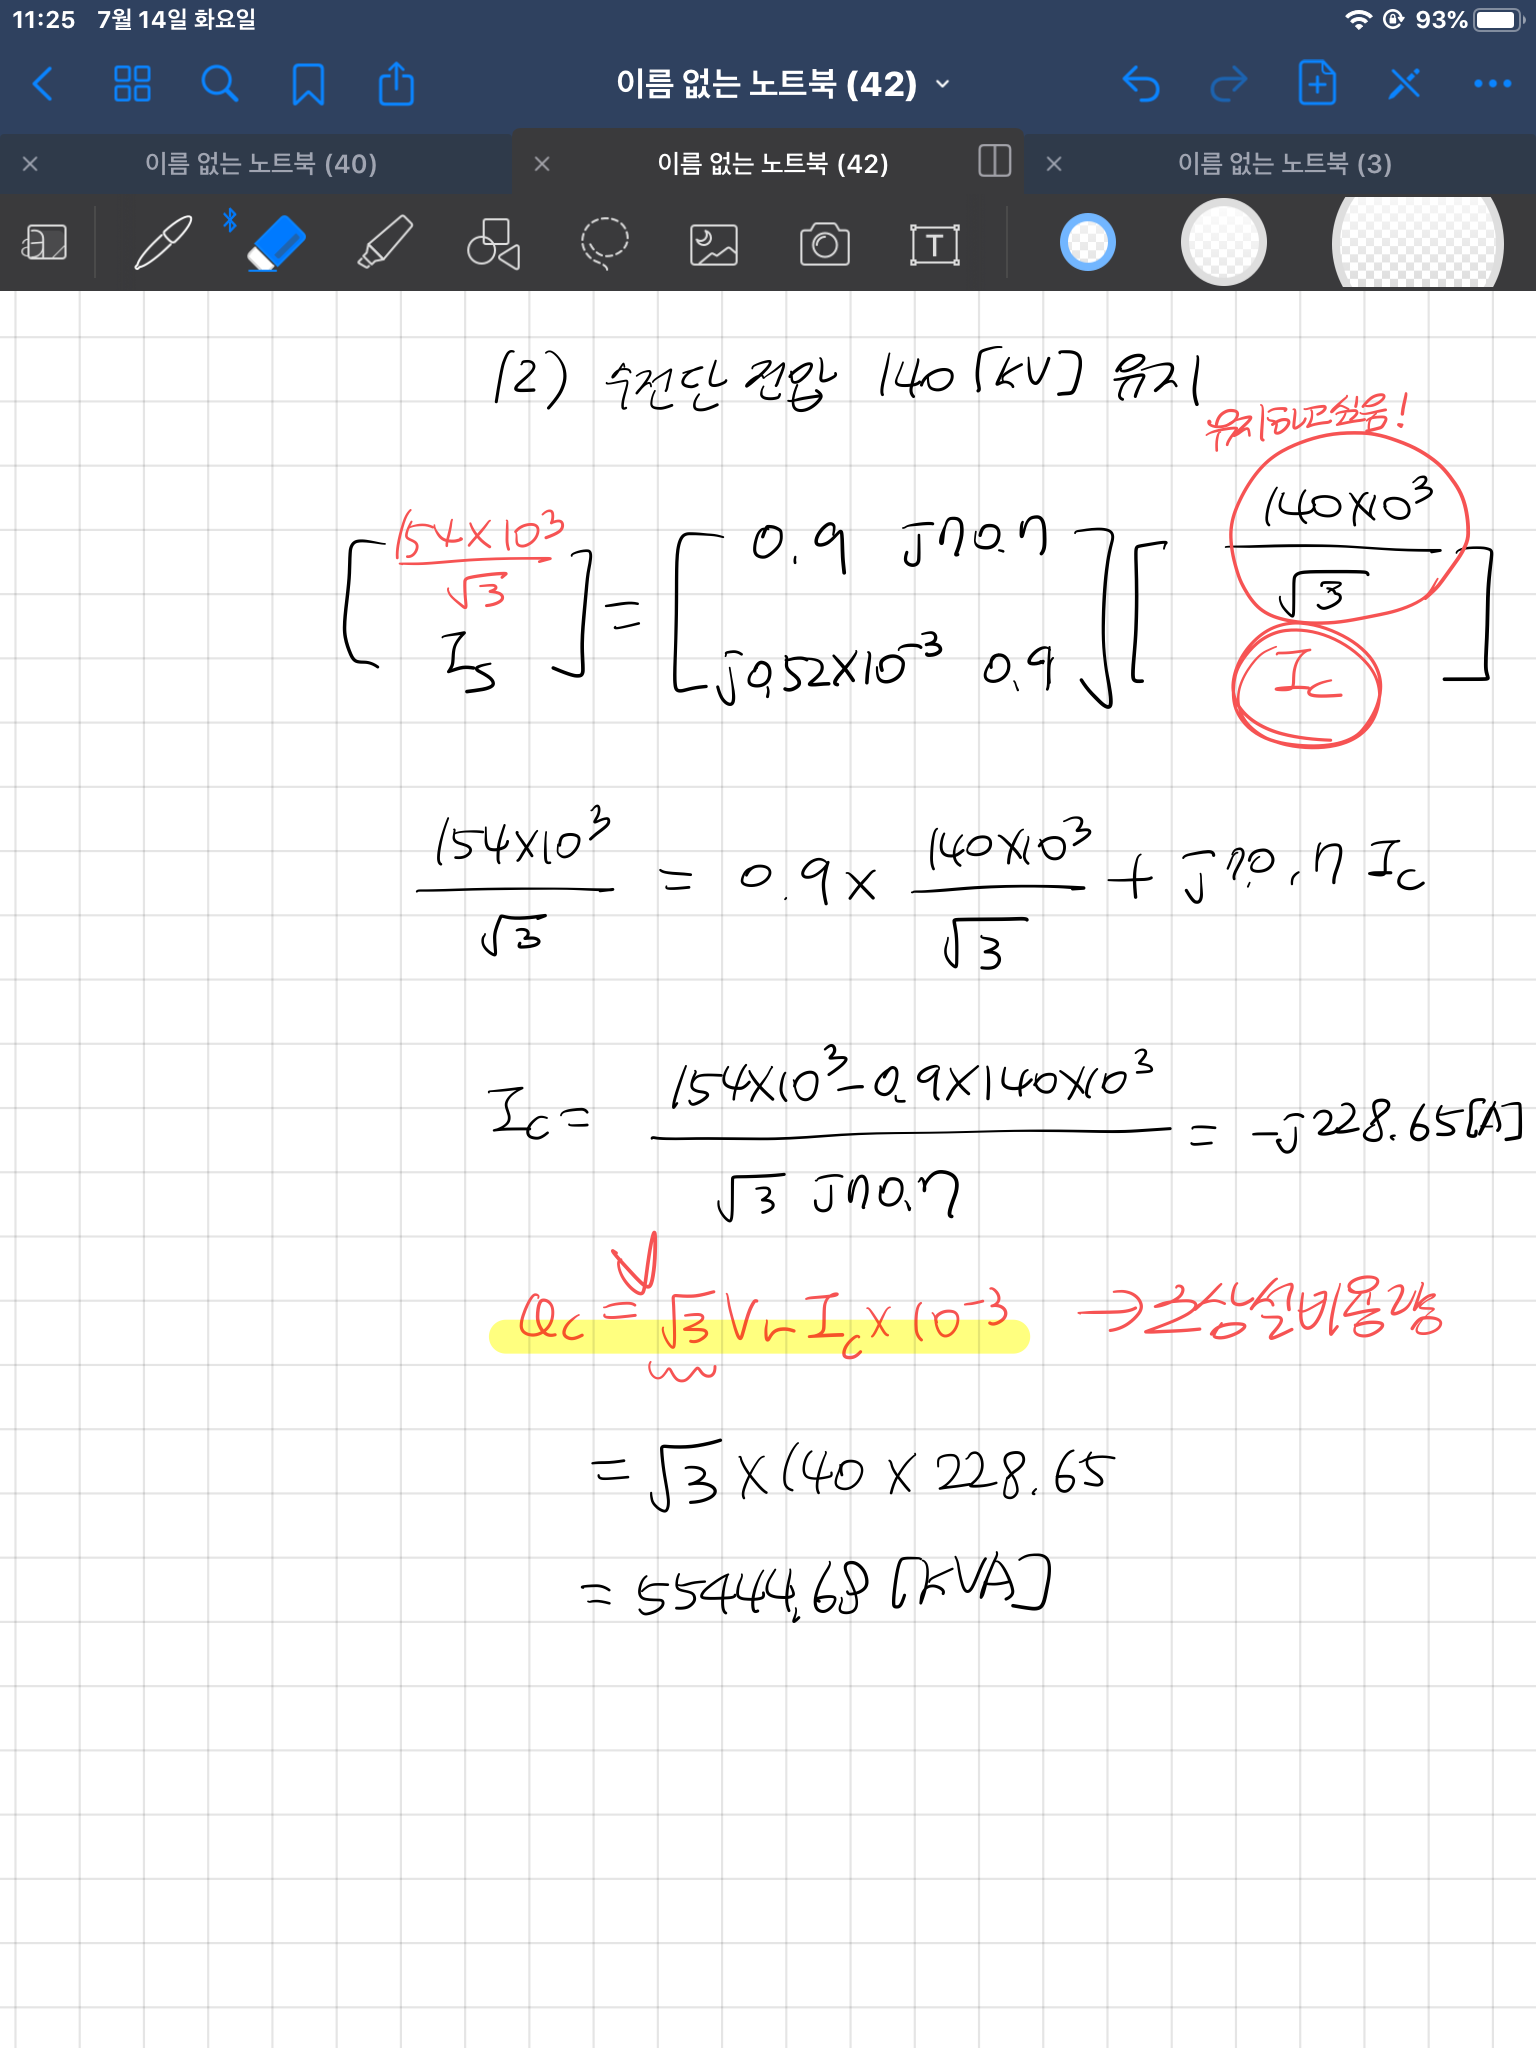 11:25 7월 14일 화요일 93%
이름 없는 노트북 (42)
이름 없는 노트북 (40) 이름 없는 노트북 (42) 이름 없는 노트북 (3)
(2) 수전단 전압 140 [kV] 유지
유지하고싶음!
[154×10³/√3 I_S] = [0.9 j70.7 j0.52×10⁻³ 0.9] [140×10³/√3 I_C]
154×10³/√3 = 0.9 × 140×10³/√3 + j70.7 I_C
I_C = 154×10³ - 0.9×140×10³ / √3 j70.7 = -j228.65[A]
Q_C = √3 V_r I_C × 10⁻³ → 조상설비용량
= √3 × 140 × 228.65
= 55444.68 [kVA]